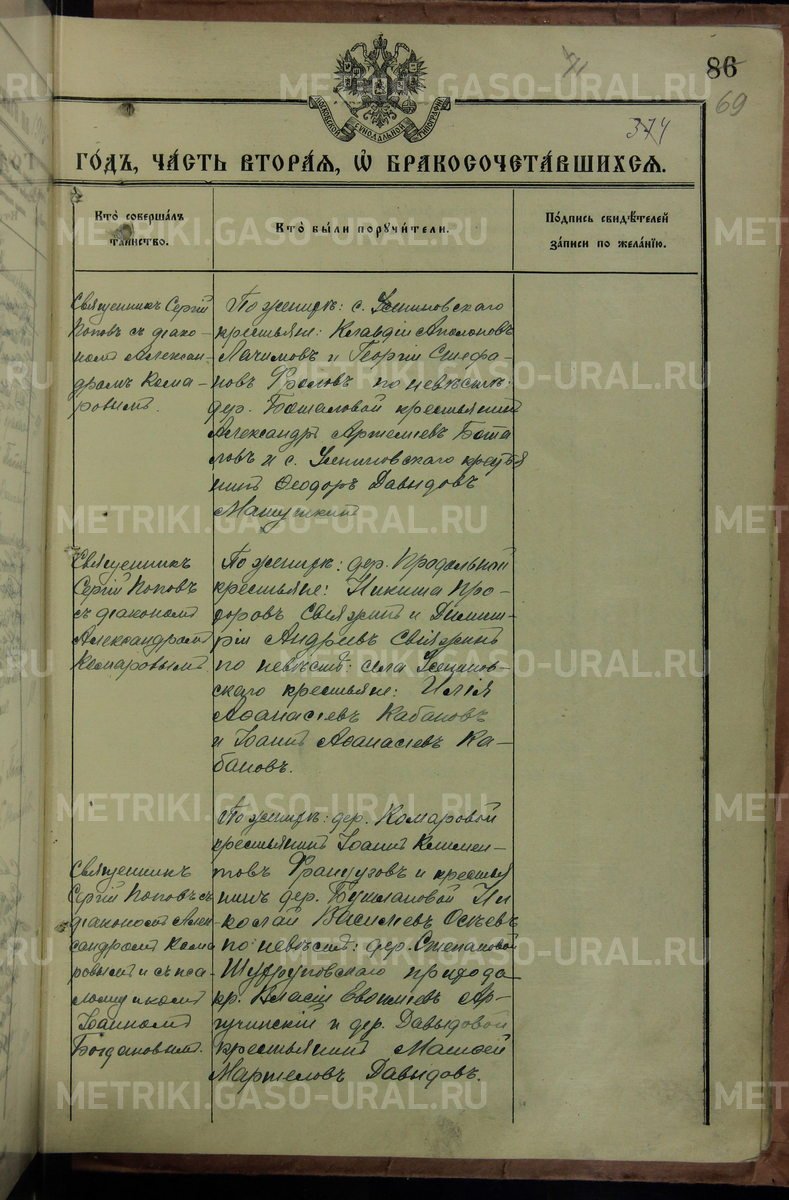 86
69
71
374
МОСКОВСКОЙ СѴНОДАЛЬНОЙ ТИПОГРАФІИ
ГО́ДЪ, ЧА́СТЬ ВТОРА́Я, Ѡ҆ БРАКОСОЧЕТА́ВШИХСЯ.
Кто̀ совершалъ
таинство.
Кто̀ бы́ли порꙋчи́тели.
По́дпись свидѣ́телей
за́писи по жела́нїю.
Священникъ Сергій
Поповъ съ діако-
номъ Алексан-
дромъ Кома-
ровымъ.
По женихѣ: с.
крестьяне: Клавдій Аполоновъ
Лачимовъ и Георгій Стефа-
новъ Фроловъ по невѣстѣ:
дер. Боталовой крестьянинъ
Александръ Артеміевъ Бота
ловъ и с. крестья
нинъ Ѳеодоръ Давыдовъ
Священникъ
Сергій Поповъ
съ діакономъ
Александромъ
Комаровымъ
По женихѣ: дер. Продольной
крестьяне: Никита Про-
доровъ Свіяжинъ и Димит-
рій Андреевъ Свіяжинъ
по невѣстѣ: села
крестьяне: Илія
Аѳанасіевъ Кабановъ
и Іоаннъ Аѳанасіевъ Ка-
бановъ.
Священникъ
Сергій Поповъ съ
діакономъ Алек-
сандромъ Кома
ровымъ и съ пса-
ломщикомъ
Іоанномъ
Богдановымъ.
По женихѣ: дер. Комаровой
крестьянинъ Іоаннъ Климен-
товъ Французовъ и крестья
нинъ дер. Бушлановой Ни
колай Василіевъ Осѣевъ
по невѣстѣ: дер. Степановой
прихода
кр. Власій Евѳиміевъ Ар-
и дер. Давыдовой
крестьянинъ Матѳей
Мартеловъ Давыдовъ.
METRIKI.GASO-URAL.RU